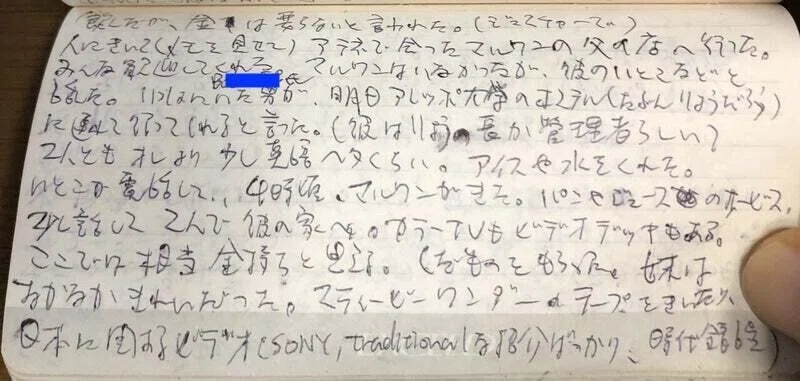 渡したが、金は要らないと言われた。(ビズィチャーで)
人にきいて(メモを見せて)アテネで会ったマルワンの父の店へ行った。
みんな歓迎してくれた。マルワンはいなかったが、彼のいとこなどと
話した。 男が、明日アレッポ大学のホステル(たぶんりょうだろう)
に連れて行ってくれると言った。(彼はりょうの長か管理者らしい)
2人ともオレより少し英語へタくらい。アイスや水をくれた。
いとこが電話して、4時頃、マルワンがきた。パンやジュースのサービス、
少し話して2人で彼の家へ。カラーTVもビデオデッキもある。
ここでは相当金持ちと思う。くだものをもらった。妹は
なかなかきれいだった。スティービーワンダーのテープをきいたり、
日本に関するビデオ(SONY, traditionalな部分ばっかり、時代錯誤)